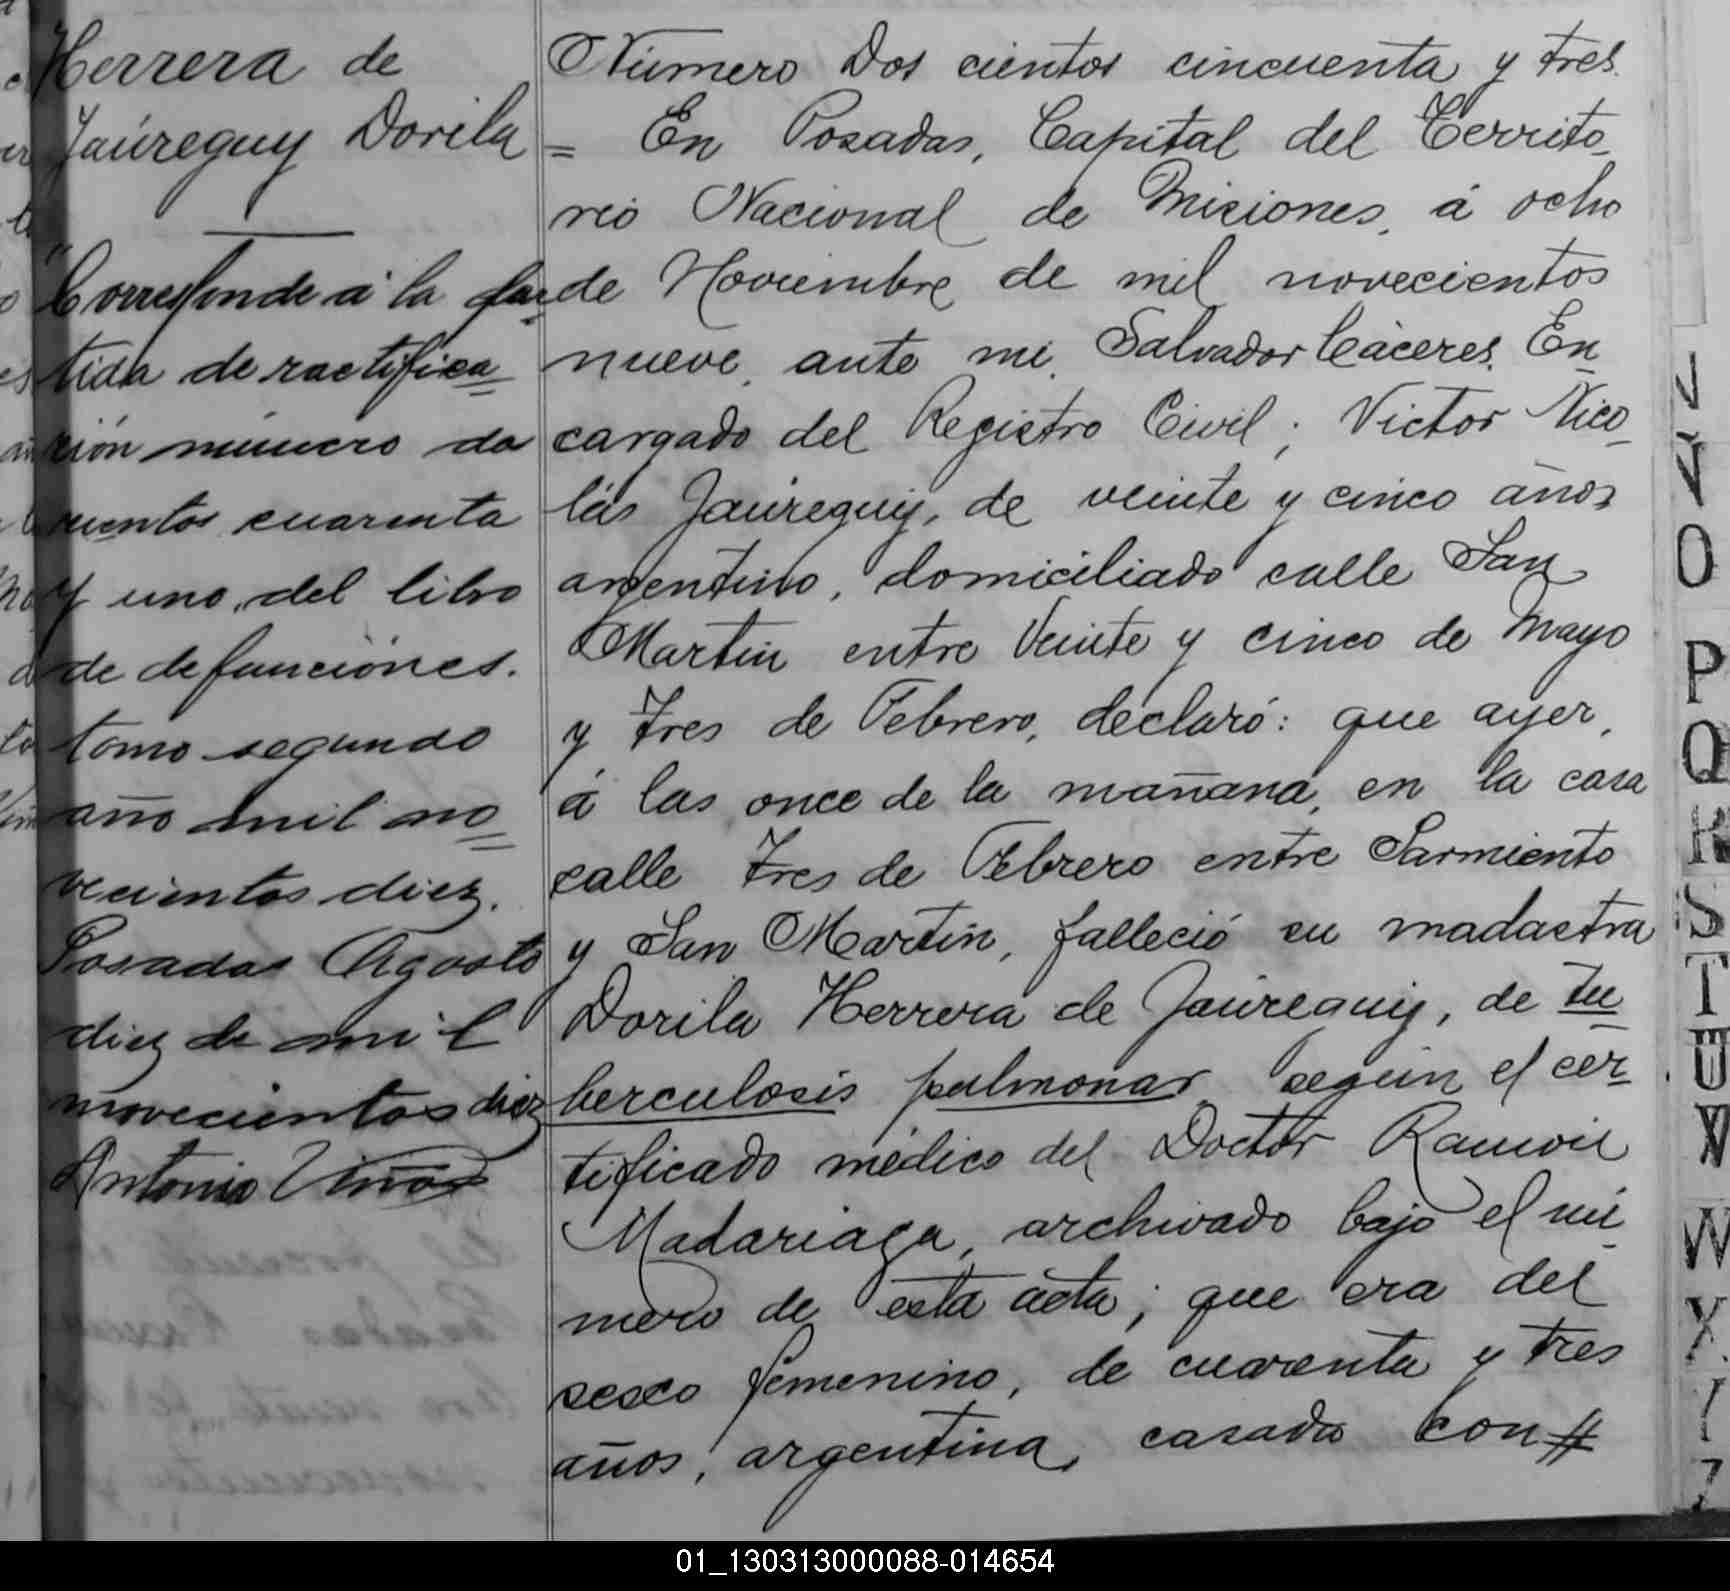 Herrera de
Jaúreguy Dorila
Corresponde á la par
tida de ractifica
ción número do
cientos cuarenta
y uno, del libro
de defunciones.
tomo segundo
año mil no
vecientos diez.
Posadas Agosto
diez de mil
novecientos diez
Antonio
Número Dos cientos cincuenta y tres.
= En Posadas, Capital del Territo_
rio Nacional de Misiones, á ocho
de Noviembre de mil novecientos
nueve, ante mi, Salvador Cáceres, En_
cargado del Registro Civil; Victor Nico_
lás Jaúreguy, de veinte y cinco años
argentino, domiciliado calle San
Martin entre Veinte y cinco de Mayo
y Tres de Febrero, declaró: que ayer,
á las once de la mañana, en la casa
calle Tres de Febrero entre Sarmiento
y San Martin, falleció su madastra
Dorila Herrera de Jaúreguy, de tu
berculosis pulmonar según el cer_
tificado médico del Doctor Ramón
Madariaga, archivado bajo el nú_
mero de esta acta; que era del
sexo femenino, de cuarenta y tres
años, argentina, casada con #
J
N
V
O
P
Q
R
S
T
U
V
W
X
Z
01_130313000088-014654